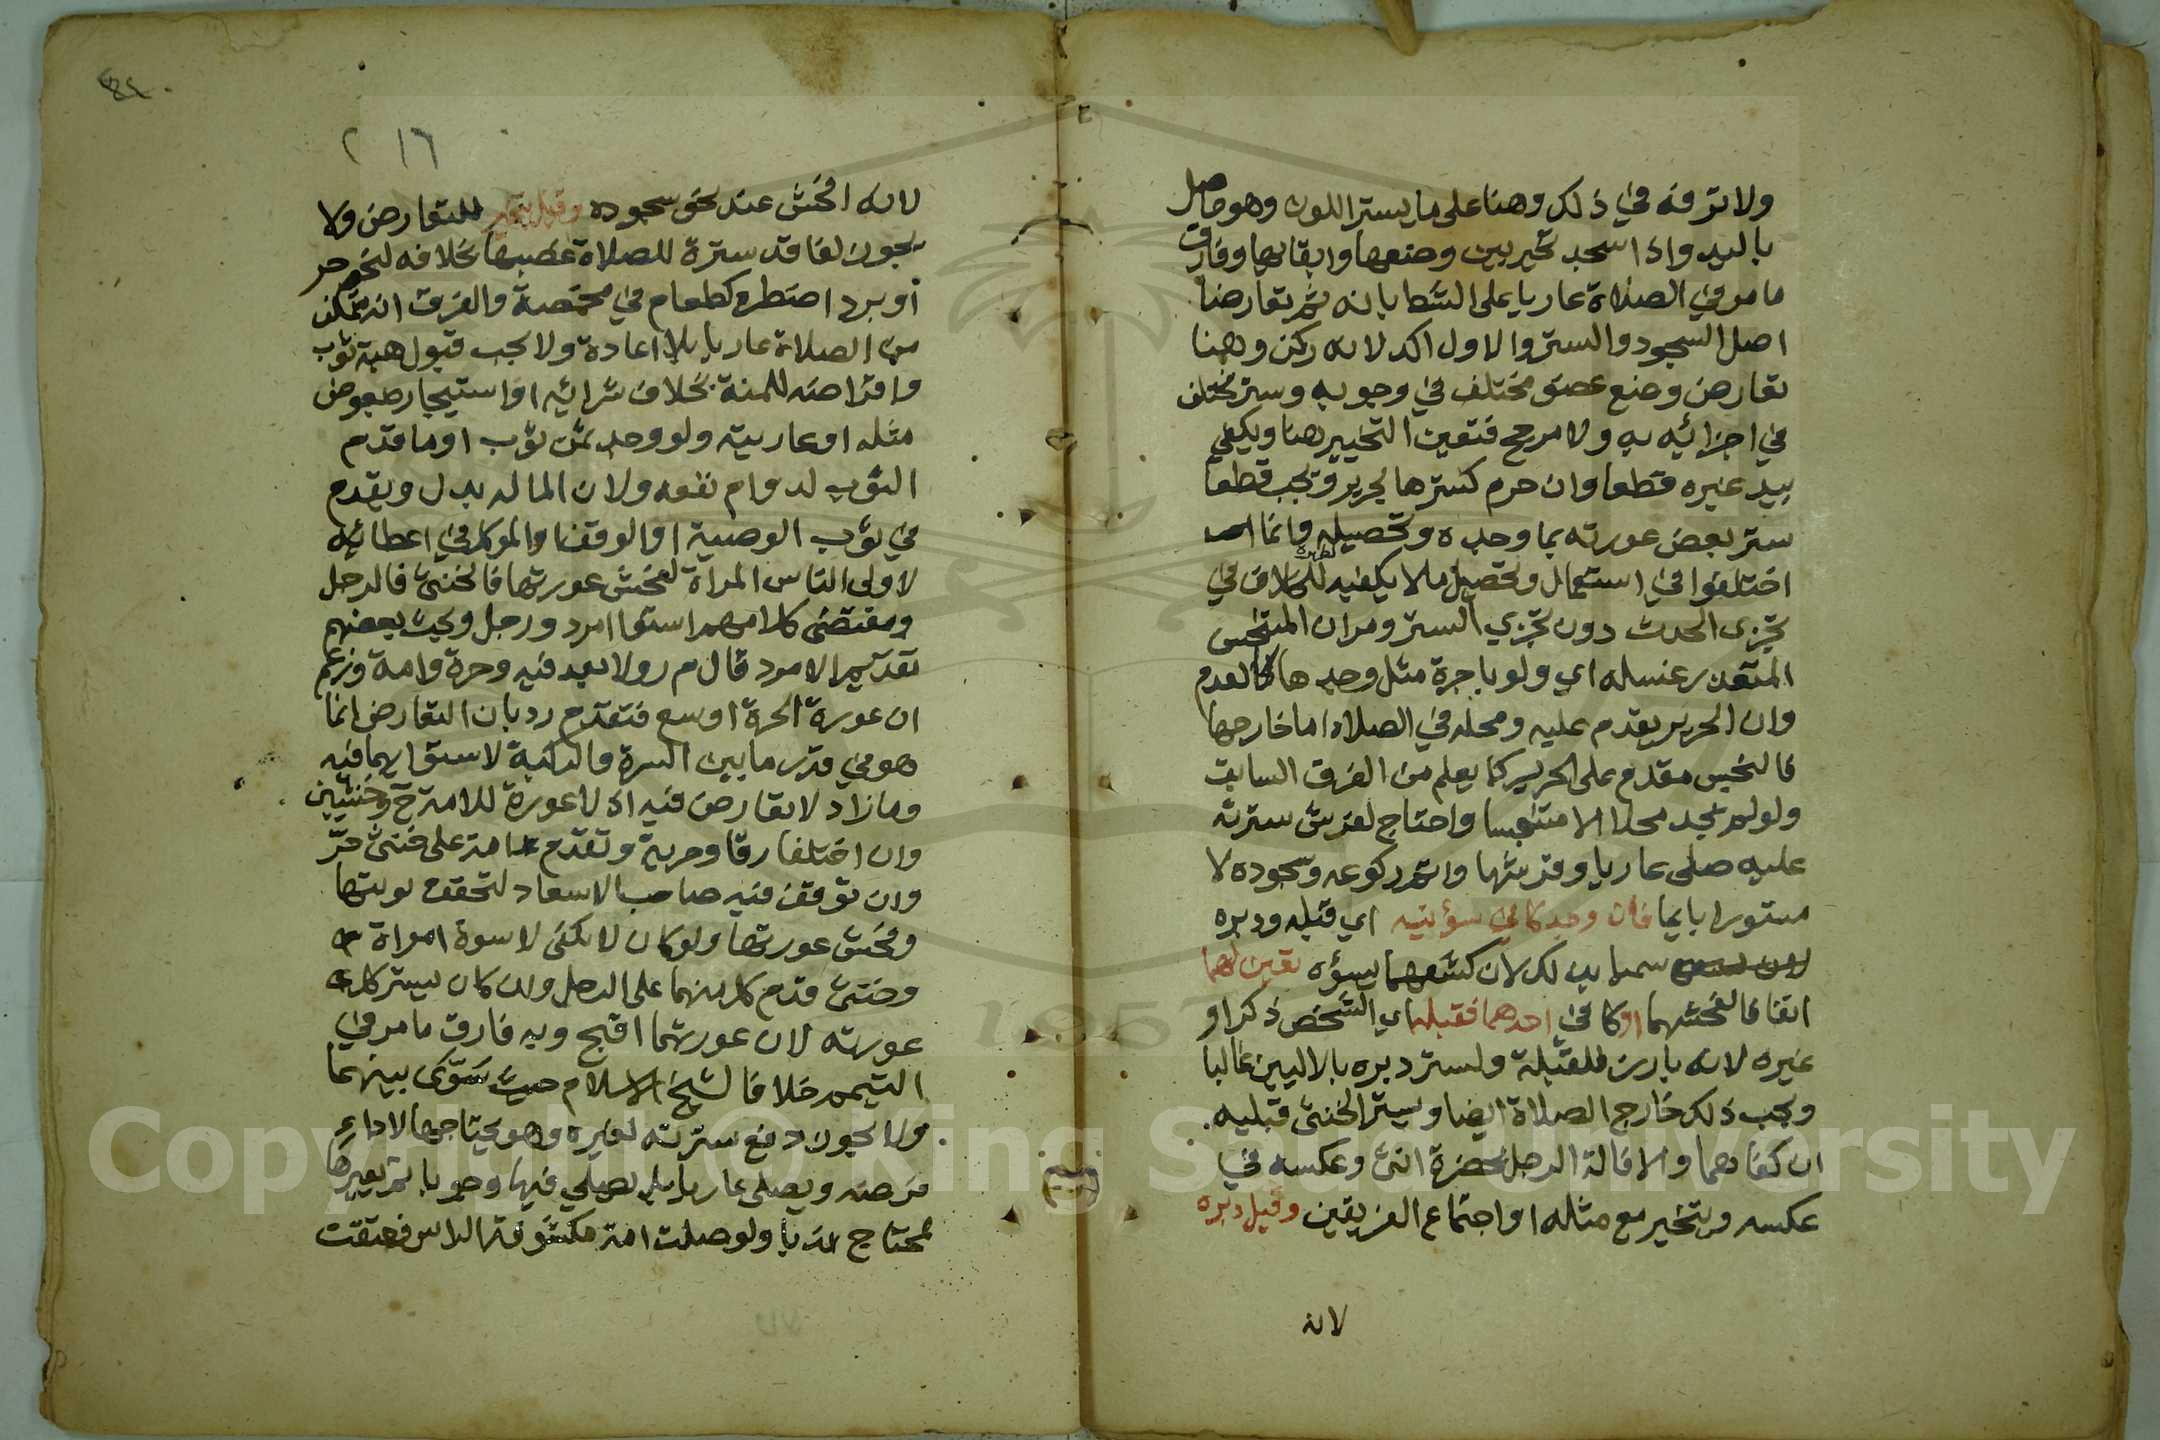 ولا ترفه في ذلك وهنا على ما يستر اللون وهو حاصل
باليد واذا سجد تخير بين وضعها وابقائها وفارق
ما مر في الصلاة عاريا على الشط بانه ثم تعارضا
اصل السجود والستر والاول اكد لانه ركن وهنا
تعارض وضع عضو مختلف في وجوبه وستر مختلف
في اجزائه به ولا مرجح فتعين التخيير هنا ويكفي
بيد غيره قطعا وان حرم كسترها بحرير وتجب قطعا
ستر بعض عورته بما وجده وتحصيله وانما
اختلفوا في استعمال وتحصيل ما لا يكفيه لطهره للخلاف في
تجزي الحدث دون تجزي الستر ومر ان المتنجس
المتعذر غسله اي ولو باجرة مثل وجدها كالعدم
وان الحرير يقدم عليه ومحله في الصلاة اما خارجها
فالنجس مقدم على الحرير كما يعلم من الفرق السابق
ولو لم يجد محلا الا متنجسا واحتاج لفرش سترته
عليه صلى عاريا وفرشها واتم ركوعه وسجوده لا
مستورا بايما فان وجد كافي سؤتيه اي قبله ودبره
سميا بذلك لان كشفهما يسؤه تعين لهما
اتفاقا لفحشهما او كافي احدهما فقبله اي الشخص ذكرا او
غيره لانه بارز للقبلة ولستر دبره بالاليين غالبا
ويجب ذلك خارج الصلاة ايضا ويستر الخنثى قبليه
ان كفاهما والا فالة الرجل بحضرة انثى وعكسه في
عكسه ويتخير مع مثله او اجتماع الفريقين وقيل دبره
لانه
٢ ١٦
لانه افحش عند نحو سجوده وقيل يتخير للتعارض ولا
يجوز لفاقد سترة للصلاة غصبها بخلافه لنحو حر
او برد اضطر كطعام في مخمصة والفرق انه تمكن
من الصلاة عاريا بلا اعادة ولا يجب قبول هبة ثوب
واقتراضه للمنة بخلاف شرائه او استيجار بعوض
مثله او عاريته ولو وجد ثمن ثوب او ما قدم
الثوب لدوام نفعه ولان الما له بدل ويقدم
في ثوب الوصية او الوقف او الموكل في اعطائه
لاولى الناس المراة لفحش عورتها فالخنثى فالرجل
ومقتضى كلامهم استوا امرد ورجل وبحث بعضهم
تقديم الامرد قال م ر ولا بعد فيه وحرة وامة وزعم
ان عورة الحرة اوسع فتقدم رد بان التعارض انما
هو في قدر ما بين السرة والركبة لاستوائهما فيه
وما زاد لا تعارض فيه اذ لا عورة للامة ثم وخنثيين
وان اختلفا رقا وحرية وتقدم امة على خنثى حر
وان توقف فيه صاحب الاسعاد لتحقق انوثتها
وفحش عورتها ولو كان لا يكفي لا سوة امراة
وخنثى قدم كل منهما على الرجل وان كان يستر كل
عورته لان عورتهما اقبح وبه فارق ما مر في
التيمم خلافا لشيخ الاسلام حيث سوى بينهما
ولا يجوز دفع سترته لغيره وهو يحتاجها لاداء
فرضه ويصلي عاريا بل يصلي فيها وجوبا ثم يعيرها
لمحتاج ندبا ولو صلت امة مكشوفة الراس فعتقت